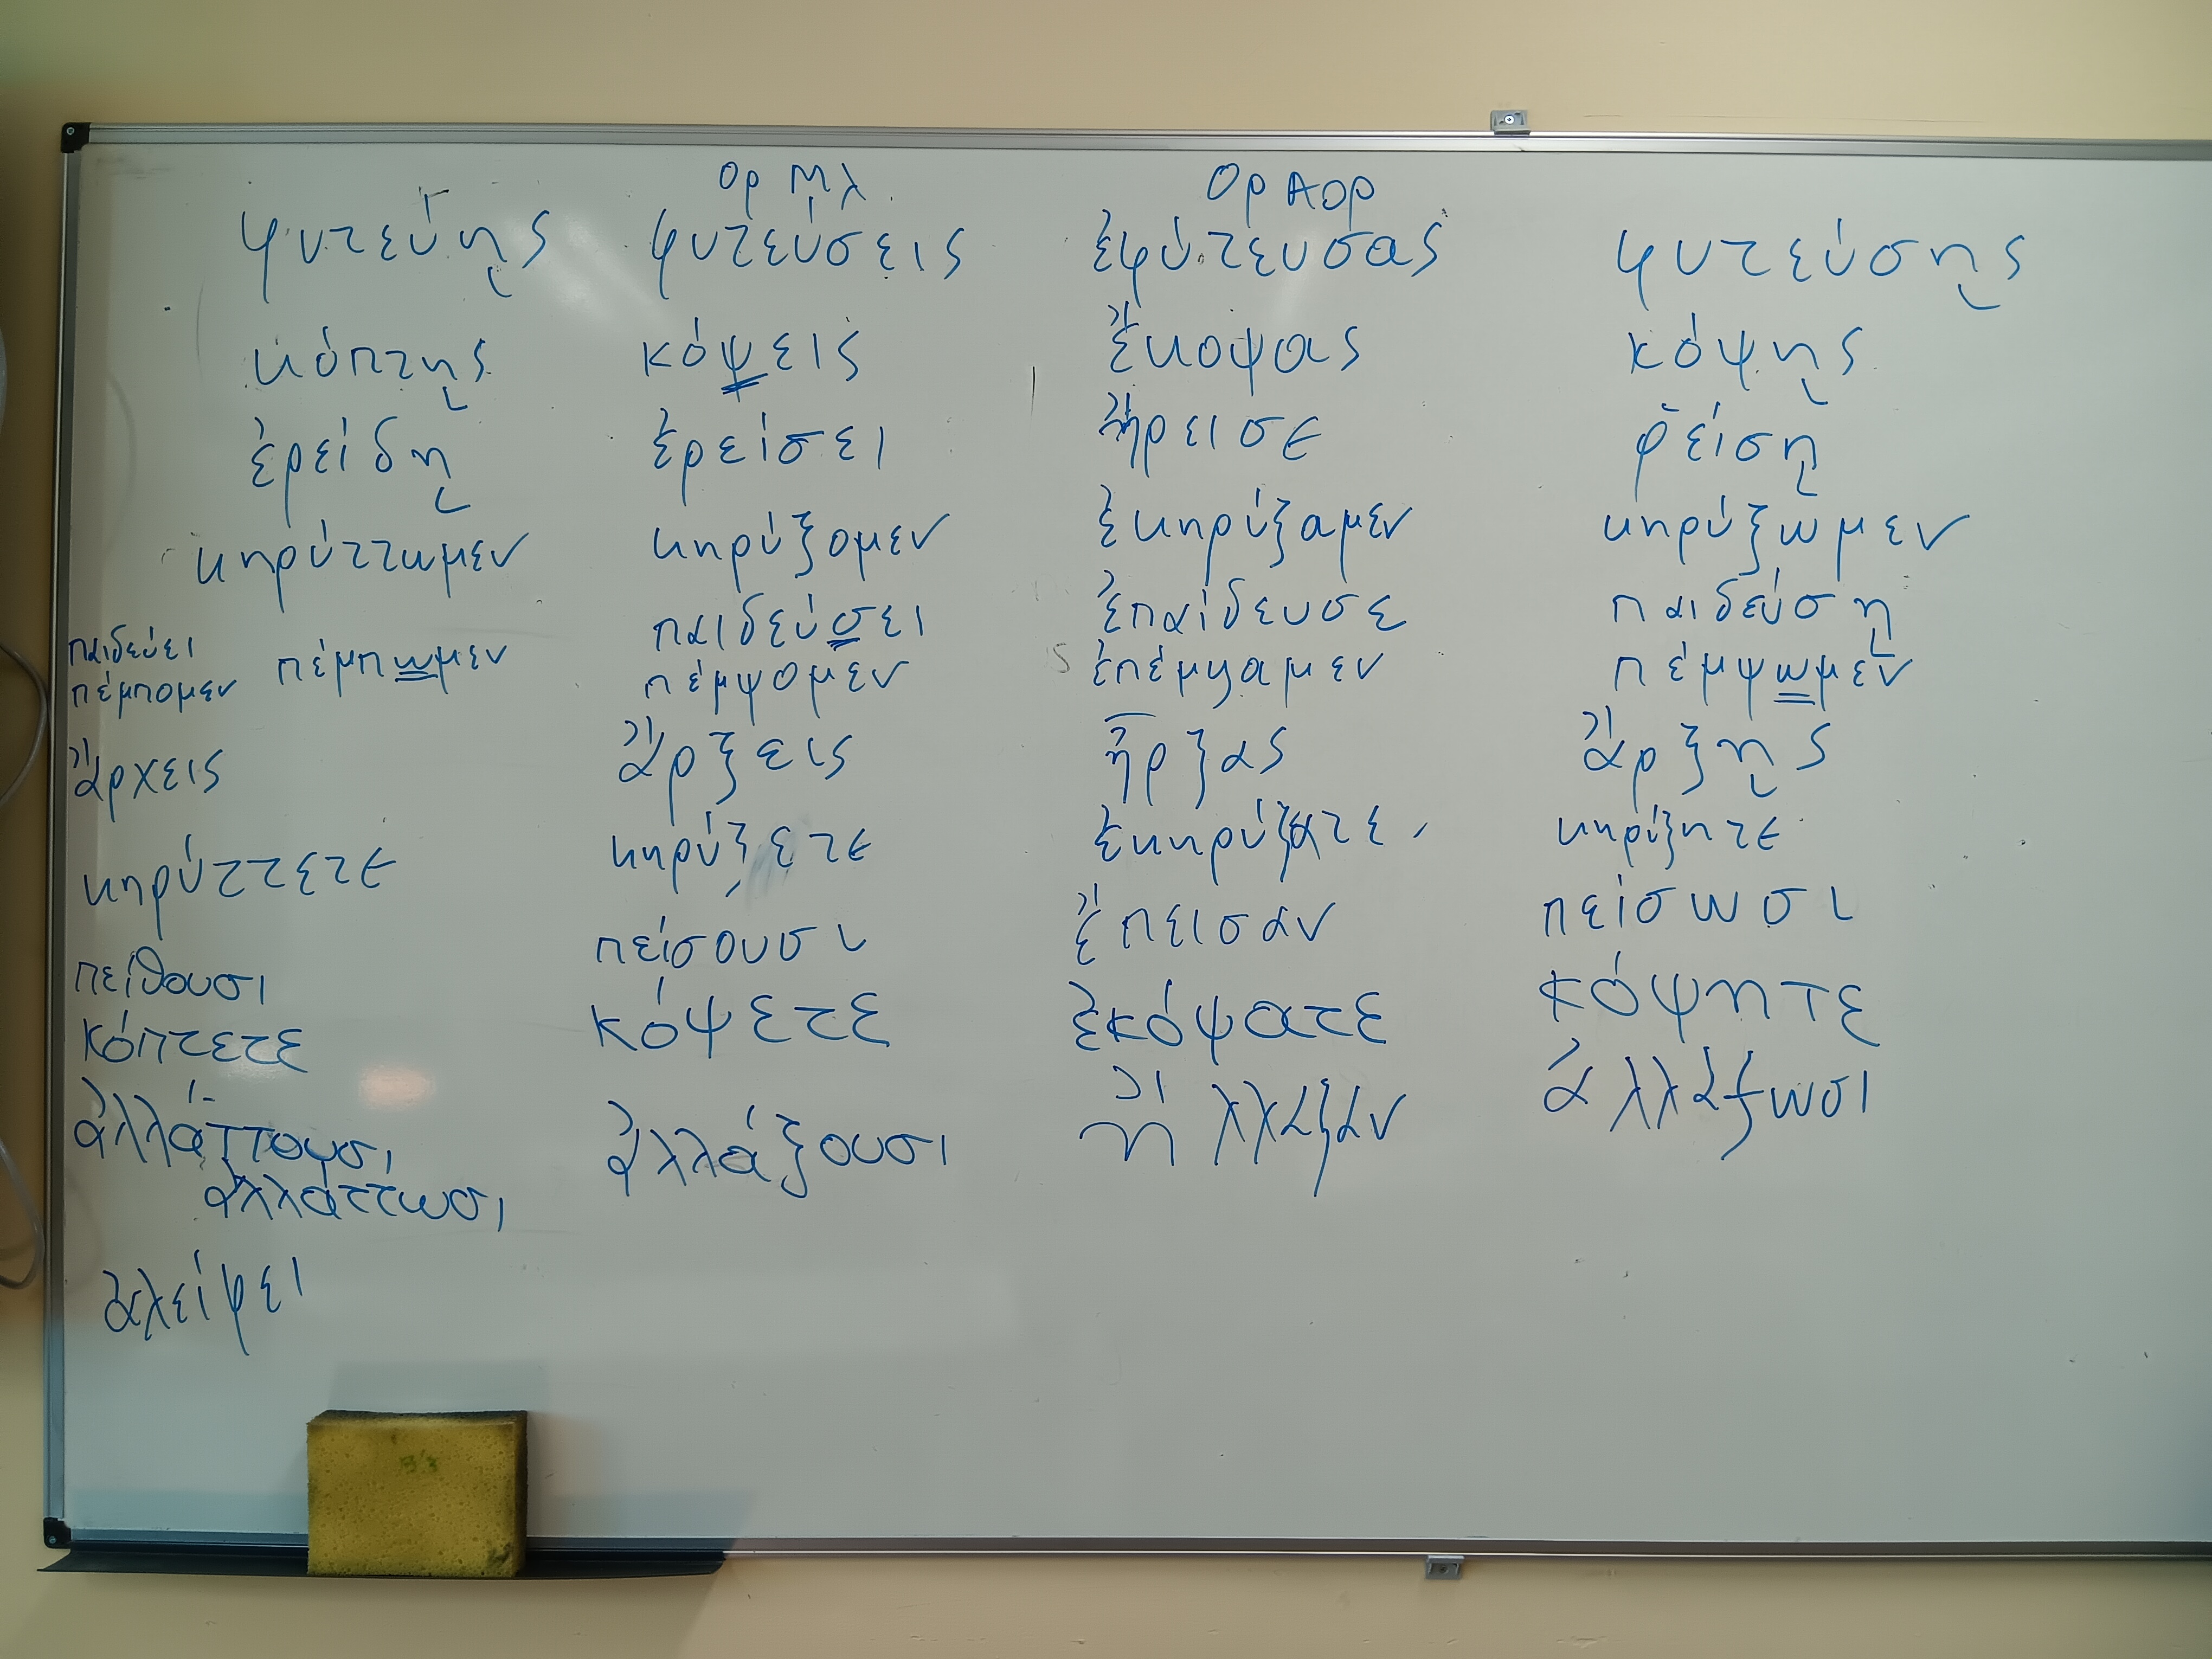 Ορ Μλ Ορ Αορ
φυτεύῃς φυτεύσεις ἐφύτευσας φυτεύσῃς
κόπτῃς κόψεις ἔκοψας κόψῃς
ἐρείδῃ ἐρείσει ἤρεισε ῤείσῃ
κηρύττωμεν κηρύξομεν ἐκηρύξαμεν κηρύξωμεν
παιδεύει παιδεύσει ἐπαίδευσε παιδεύσῃ
πέμπομεν πέμπωμεν πέμψομεν ἐπέμψαμεν πέμψωμεν
ἄρχεις ἄρξεις ἦρξας ἄρξῃς
κηρύττετε κηρύξετε ἐκηρύξατε κηρύξητε
πείθουσι πείσουσι ἔπεισαν πείσωσι
κόπτετε κόψετε ἐκόψατε κόψητε
ἀλλάττουσι ἀλλάξουσι ἤλλαξαν ἀλλάξωσι
ἀλλάττωσι
ἀλείφει